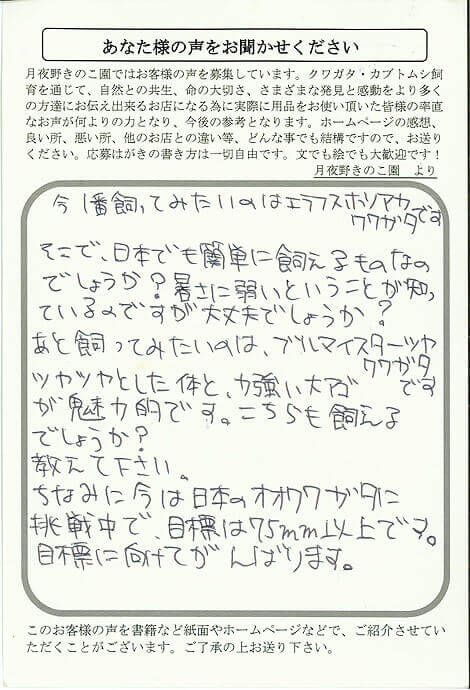 あなた様の声をお聞かせください
月夜野きのこ園ではお客様の声を募集しています。クワガタ・カブトムシ飼
育を通じて、自然との共生、命の大切さ、さまざまな発見と感動をより多く
の方達にお伝え出来るお店になる為に実際に用品をお使い頂いた皆様の率直
なお声が何よりの力となり、今後の参考となります。ホームページの感想、
良い所、悪い所、他のお店との違い等、どんな事でも結構ですので、お送り
ください。応募はがきの書き方は一切自由です。文でも絵でも大歓迎です！
月夜野きのこ園　より
今1番飼ってみたいのはエラフスホソアカ
クワガタです
そこで、日本でも簡単に飼えるものなの
でしょうか？暑さに弱いということが知っ
ているのですが大丈夫でしょうか？
あと飼ってみたいのは、ブルマイスターツヤ
クワガタ
ツヤツヤとした体と、力強い大アゴ です
が魅力的です。こちらも飼える
でしょうか？
教えて下さい。
ちなみに今は日本のオオクワガタに
挑戦中で、目標は75mm以上です。
目標に向けてがんばります。
このお客様の声を書籍など紙面やホームページなどで、ご紹介させてい
ただくことがございます。ご了承の上お送り下さい。